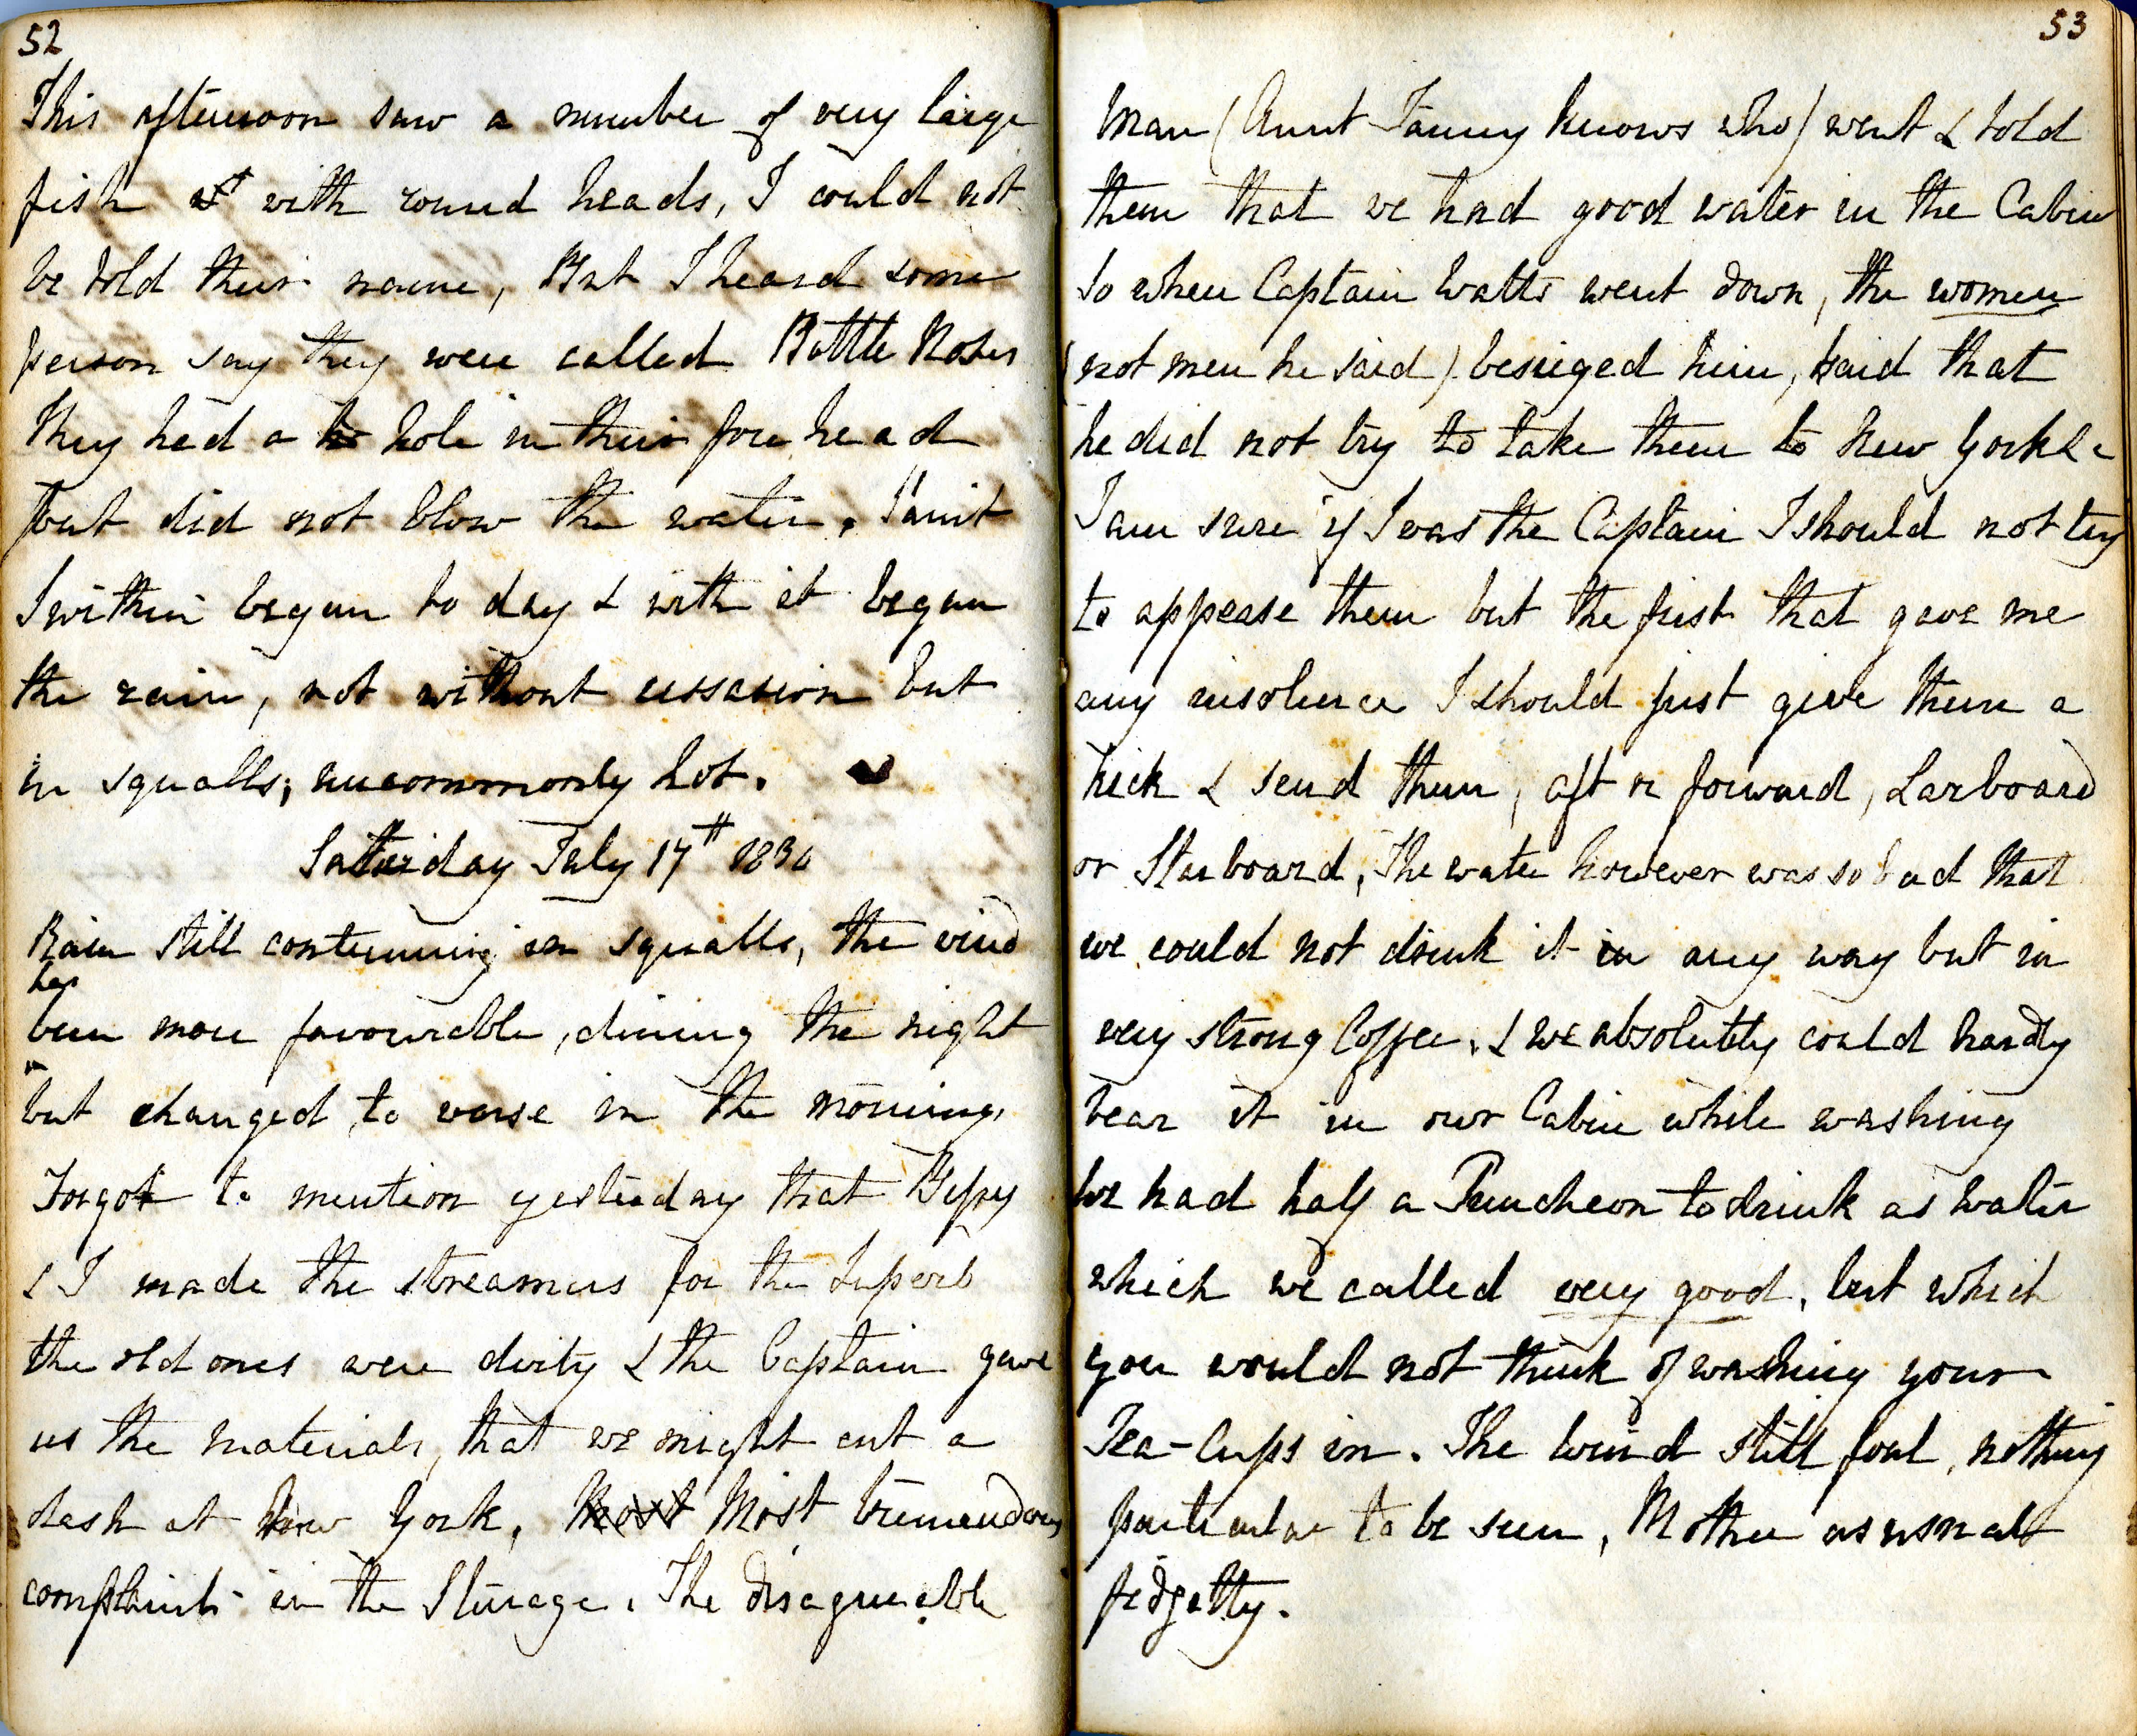 52
This afternoon saw a number of very large
fish with round heads, I could not
be told their name, But I heard some
person say they were called Bottle Noses
They had a hole in their fore head
but did not blow the water. Saint
Swithin began to day & with it began
the rain, not without cessasion but
in squalls; uncommonly hot.
Saturday July 17th 1830
Rain still continuing in squalls, the wind
has
been more favourable, during the night
but changed to worse in the morning,
Forgot to mention yesterday that Bessy
& I made the streamers for the Superb
the old ones were dirty & the Captain gave
us the materials, that we might cut a
dash at New York, Most Most tremendous
complaints in the Sturage. The disagreeable
53
Man (Aunt Fanny knows who) went & told
them that we had good water in the Cabin
so when Captain Watts went down, the women
(not men he said) besieged him, said that
he did not try to take them to New York &c
I am sure if I was the Captain I should not try
to appease them but the first that gave me
any insolence I should just give them a
kick & send them, aft or forward, Larboard
or Starboard, The water however was so bad that
we could not drink it in any way but in
very strong Coffee, & we absolutely could hardly
bear it in our Cabin while washing
We had half a Puncheon to drink as water
which we called very good, but which
you would not think of washing your
Tea-Cups in. The wind still foul, nothing
particular to be seen, Mother as usual
fidgetty.